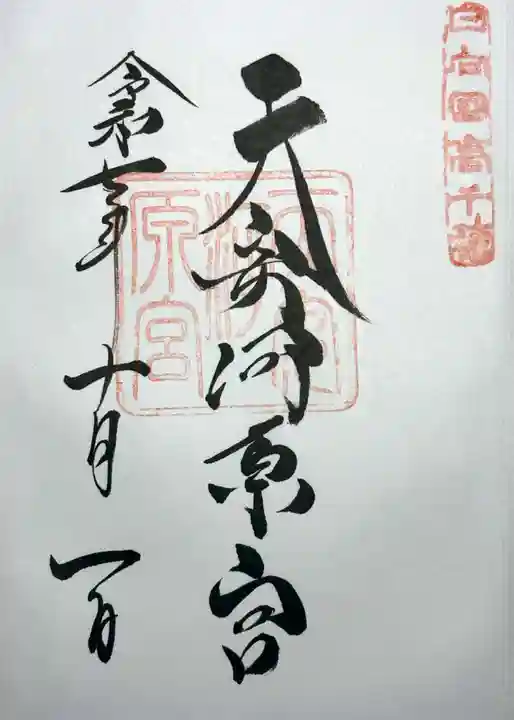 日向国高千穂
天安河原宮
令和七年
十月
一日